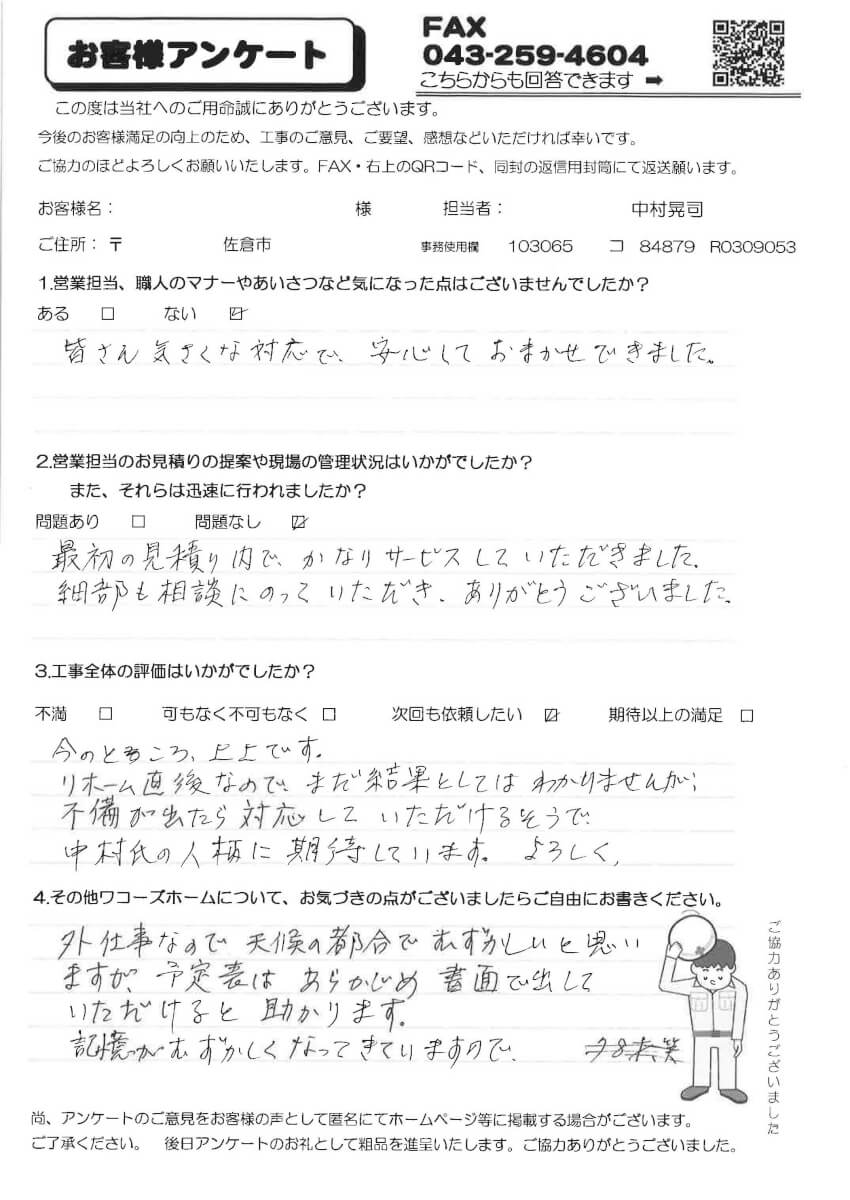 お客様アンケート
FAX
043-259-4604
こちらからも回答できます ➡
この度は当社へのご用命誠にありがとうございます。
今後のお客様満足の向上のため、工事のご意見、ご要望、感想などいただければ幸いです。
ご協力のほどよろしくお願いいたします。FAX・右上のQRコード、同封の返信用封筒にて返送願います。
お客様名： 様 担当者： 中村晃司
ご住所：〒 佐倉市 事務使用欄 103065 コ 84879 R0309053
1.営業担当、職人のマナーやあいさつなど気になった点はございませんでしたか？
ある □ ない ☑
皆さん気さくな対応で、安心しておまかせできました。
2.営業担当のお見積りの提案や現場の管理状況はいかがでしたか？
また、それらは迅速に行われましたか？
問題あり □ 問題なし ☑
最初の見積り内で、かなりサービスしていただきました。
細部も相談にのっていただき、ありがとうございました。
3.工事全体の評価はいかがでしたか？
不満 □ 可もなく不可もなく □ 次回も依頼したい ☑ 期待以上の満足 □
今のところ、上上です。
リホーム直後なので、まだ結果としてはわかりませんが、
不備が出たら対応していただけるそうで
中村氏の人柄に期待しています。よろしく、
4.その他ワコーズホームについて、お気づきの点がございましたらご自由にお書きください。
外仕事なので天候の都合でむずかしいと思い
ますが、予定表はあらかじめ書面で出して
いただけると助かります。
記憶がむずかしくなってきていますので、 笑
ご協力ありがとうございました
尚、アンケートのご意見をお客様の声として匿名にてホームページ等に掲載する場合がございます。
ご了承ください。 後日アンケートのお礼として粗品を進呈いたします。ご協力ありがとうございました。